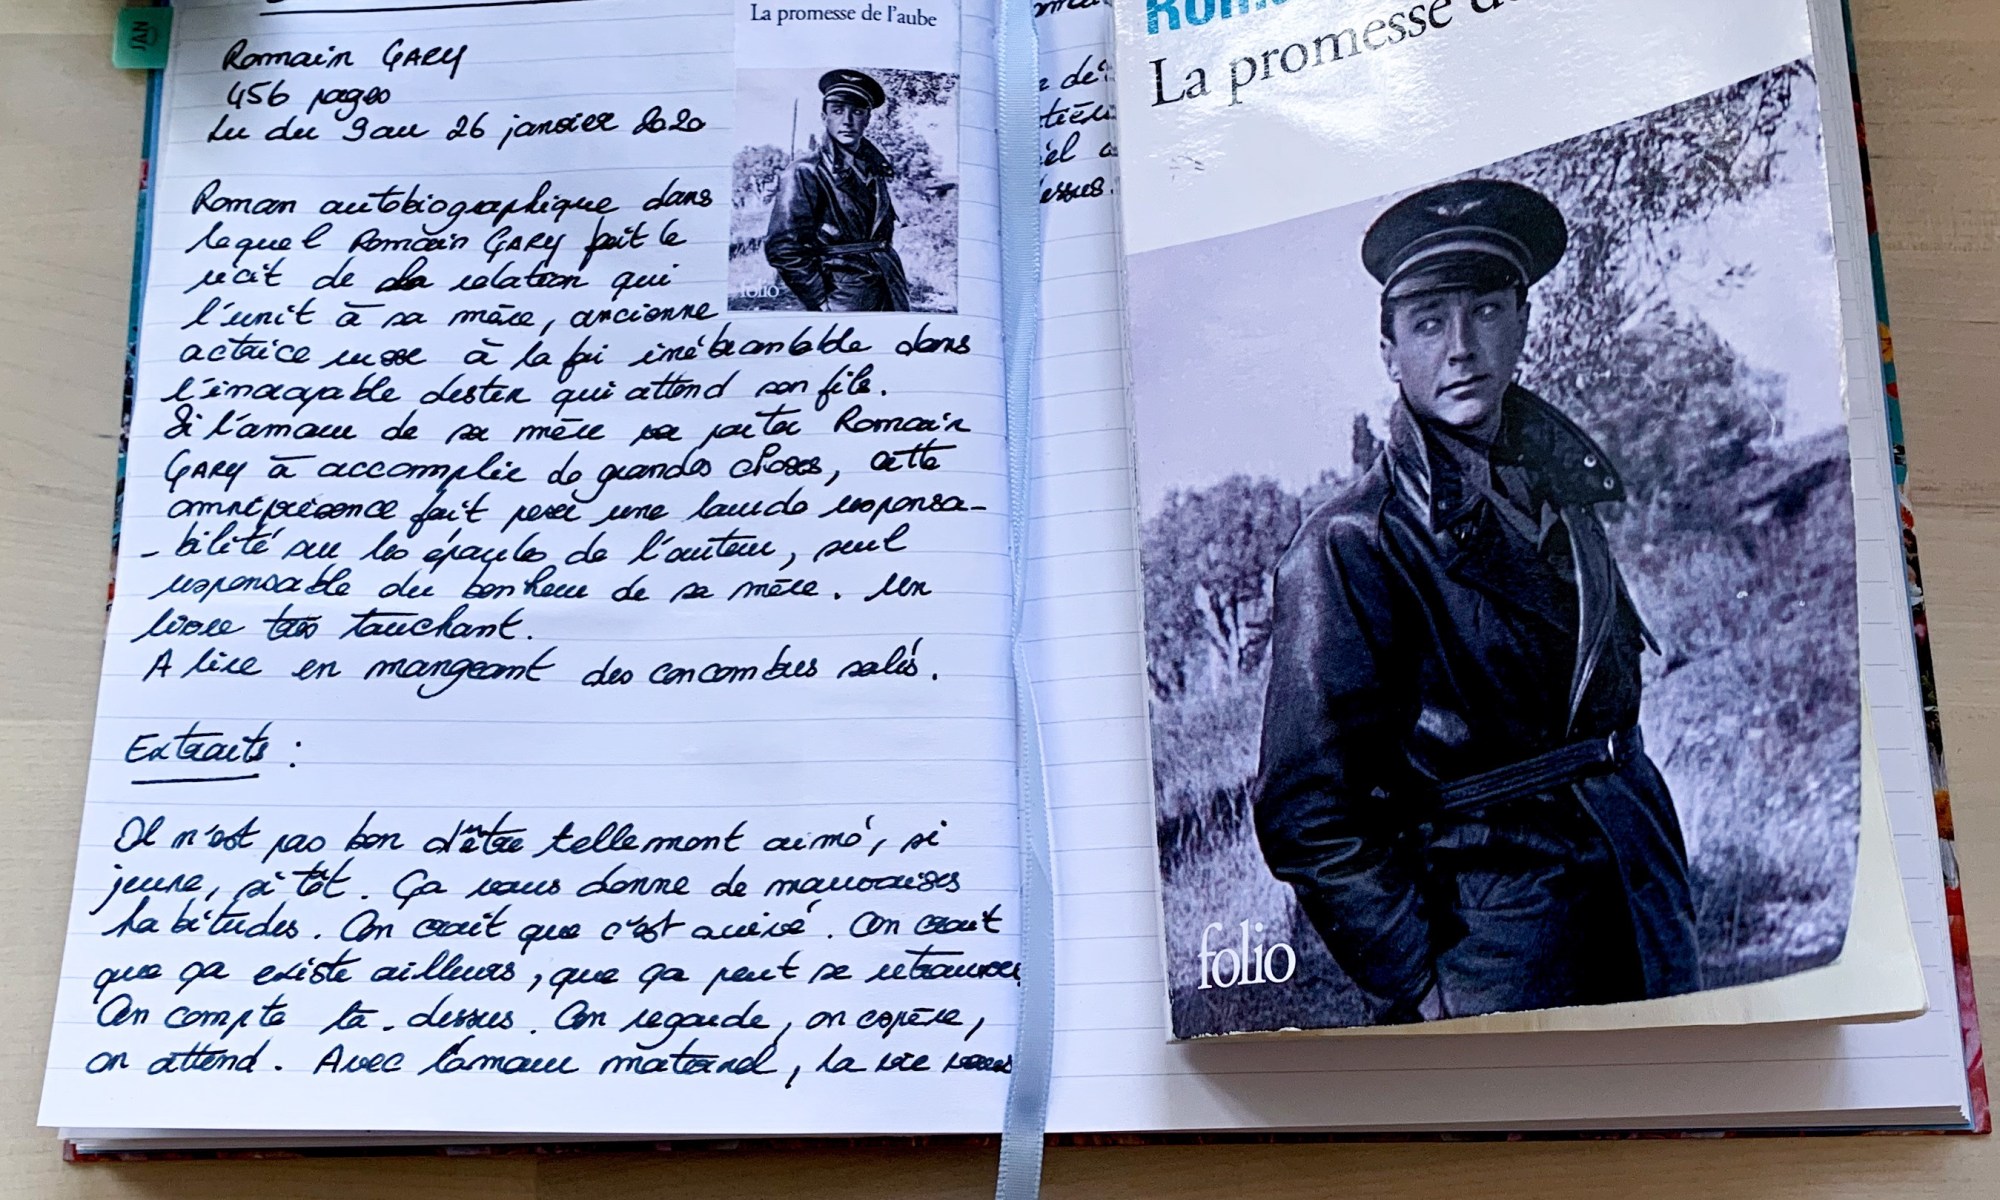 La promesse de l'aube
Romain GARY
456 pages
Lu du 9 au 26 janvier 2020
Roman autobiographique dans
lequel Romain GARY fait le
récit de la relation qui
l'unit à sa mère, ancienne
actrice russe à la foi inébranlable dans
l'incroyable destin qui attend son fils.
Si l'amour de sa mère va porter Romain
GARY à accomplir de grandes choses, cette
omniprésence fait peser une lourde responsa-
-bilité sur les épaules de l'auteur, seul
responsable du bonheur de sa mère. Un
livre très touchant.
A lire en mangeant des concombres salés.
Extraits :
Il n'est pas bon d'être tellement aimé, si
jeune, si tôt. Ça vous donne de mauvaises
habitudes. On croit que c'est arrivé. On croit
que ça existe ailleurs, que ça peut se retrouver
On compte là-dessus. On regarde, on espère,
on attend. Avec l'amour maternel, la vie vous
folio
JAN
La promesse
folio